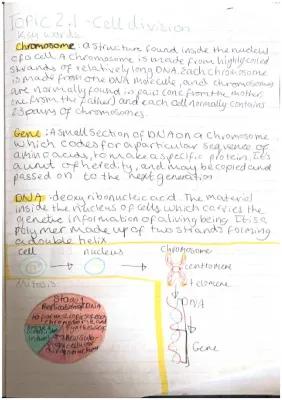 TOPIC 2.1 - Cell division
Key words
Chromosome: a structure found inside the nucleus
of a cell. A chromosome is made from highly coiled
strands of relatively long DNA. Each chromosome
is made from one DNA molecule, and chromosomes
are normally found in pairs (one from the mother,
one from the father) and each cell normally contains
23 pairs of chromosomes.
Gene: A small section of DNA on a chromosome
which codes for a particular sequence of
amino acids, to make a specific protein. It's
a unit of heredity, and may be copied and
passed on to the next generation
DNA: deoxyribonucleic acid. The material
inside the nucleus of cells, which carries the
genetic information of a living being. It is a
polymer made up of two strands forming
a double helix
cell nucleus Chromosome
centromere
telomere
DNA
Gene
mitosis
Stage 1